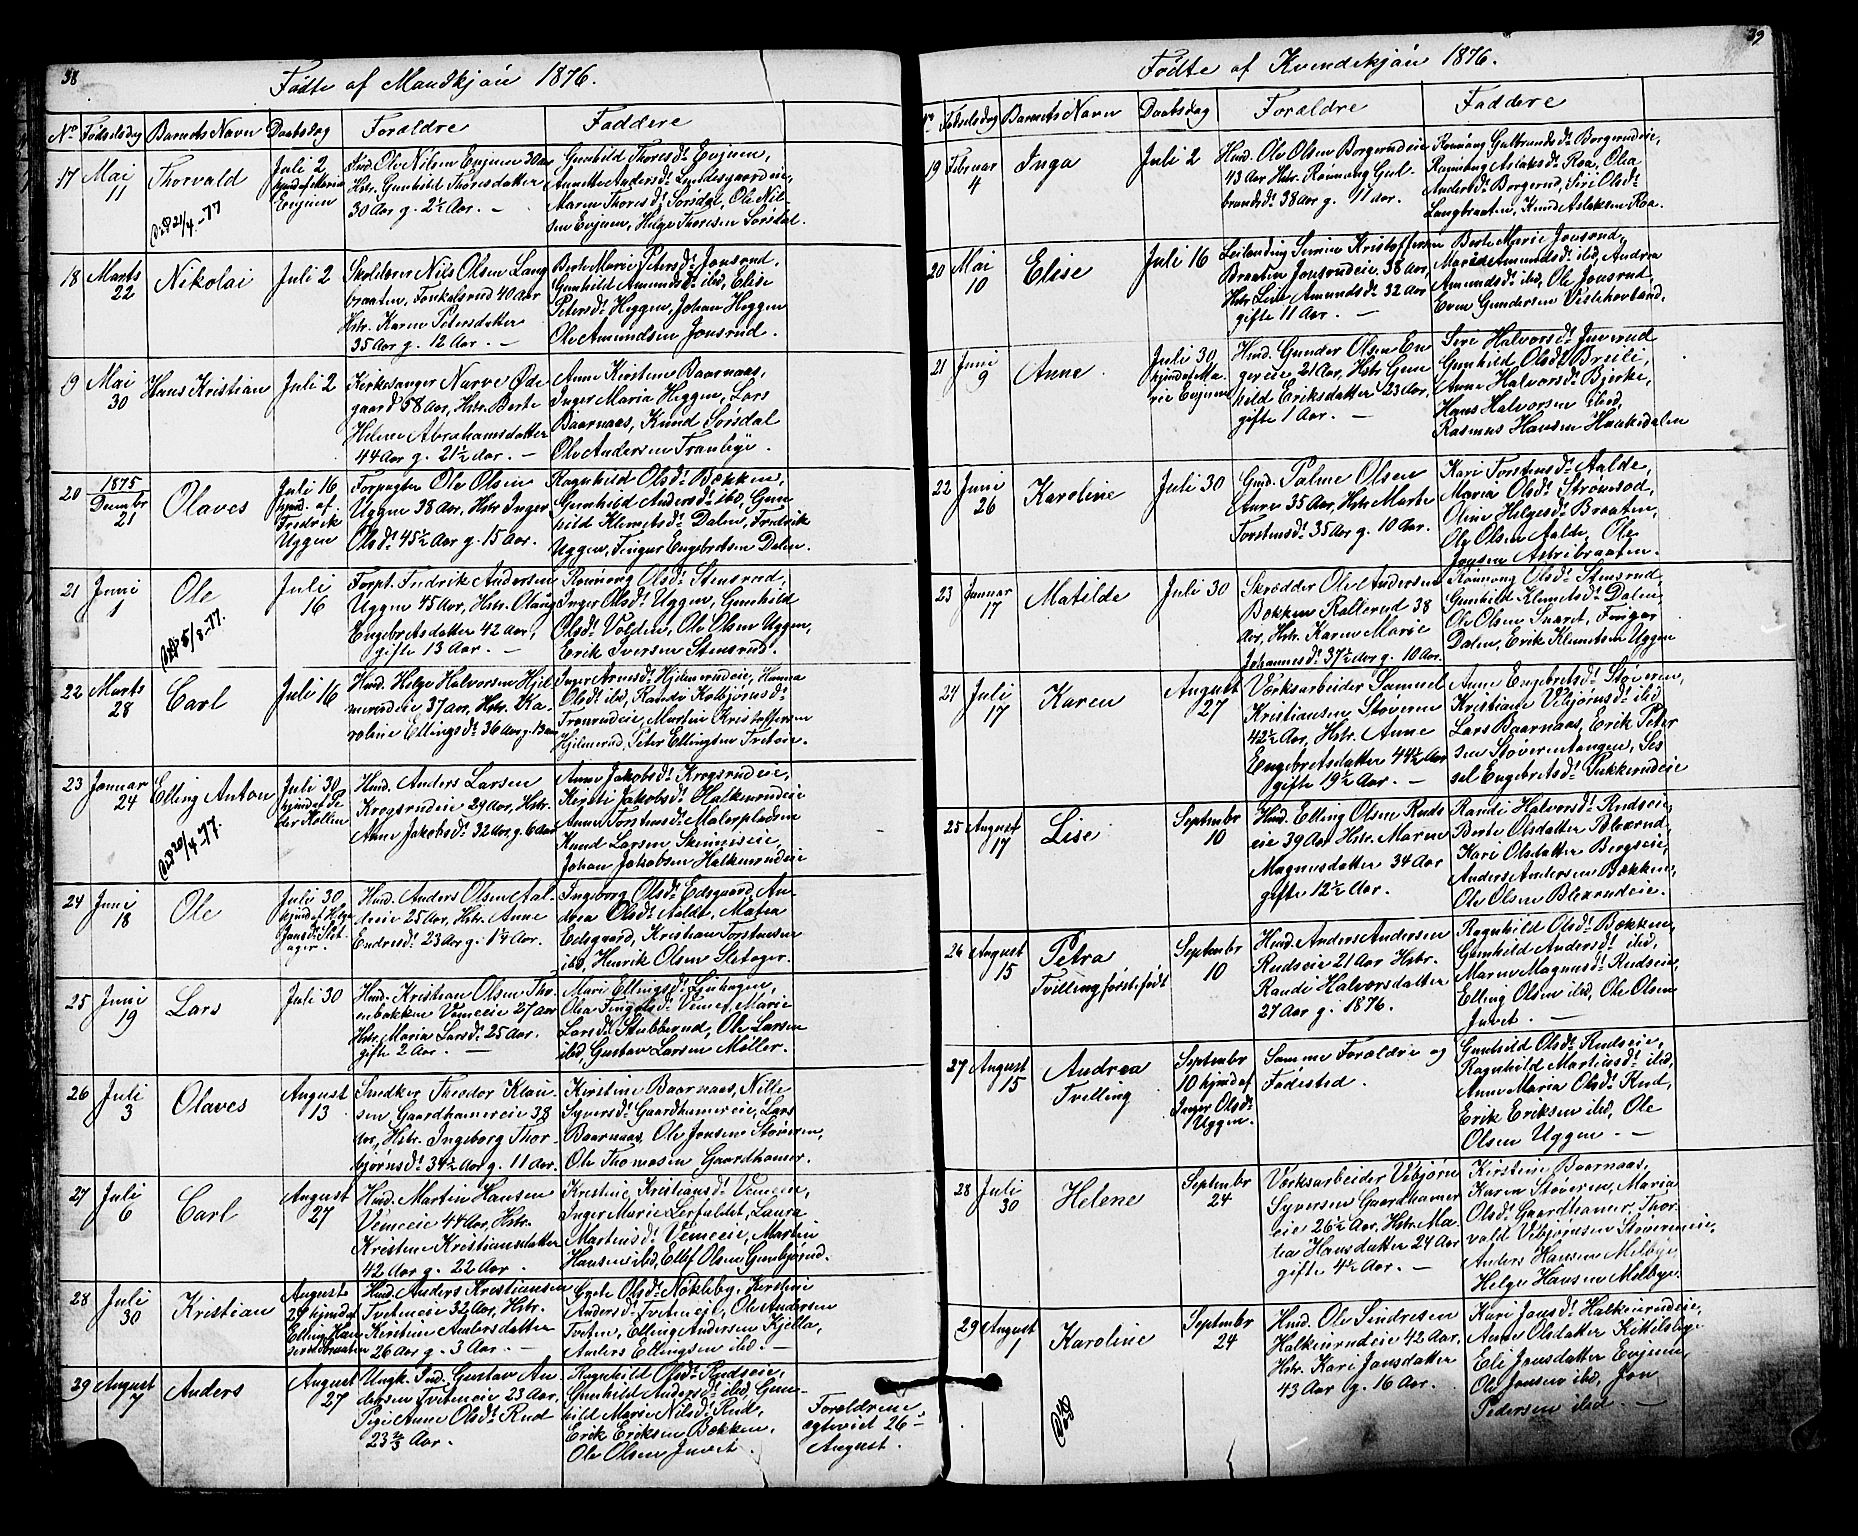 38
Fødte af Mandkjøn 1876.
No Fødselsdag Barnets Navn Daabsdag Forældre Faddere
17 Mai 11
Thorvald
Død 21/4-77
Juli 2
hjmd. af Maria
Evjuen
Ind. Ole Nilsen Evjuen 30 Aar
Hstr. Gunhild Thoresdatter
30 Aar g. 2½ Aar. —
Gunhild Thoresd. Evjuen,
Annette Andersd. Lundesgaardeie,
Maren Thoresd. Sørsdal, Ole Nil-
sen Evjuen, Helge Thoresen Sørsdal.
18 Marts 22
Nikolai
Juli 2
Skolelærer Nils Olsen Lang
braaten, Fonkalsrud 40 Aar
Hstr. Karen Petersdatter
35 Aar g. 12 Aar. —
Berte Marie Petersd. Jonsrud,
Gunhild Amundsd. ibid, Elise
Petersd. Heggen, Johan Heggen
Ole Amundsen Jonsrud.
19 Mai 30
Hans Kristian
Juli 2
Kirkesanger Narve Øde
gaard 58 Aar, Hstr. Berte
Helene Abrahamsdatter
44 Aar g. 21½ Aar. —
Anne Kirstine Baarnaas,
Inger Maria Heggen, Lars
Baarnaas, Knud Sørsdal
Ole Andersen Tranbye.
20 1875
Decembr 21
Olaves
Juli 16
hjmd. af
Fredrik
Uggen
Forpagter Ole Olsen
Uggen 38 Aar, Hstr. Inger
Olsd. 45½ Aar g. 15 Aar.
Ragnhild Olsd. Bokken,
Gunhild Andersd. ibid, Gun
hild Klemetsd. Dalen, Fredrik
Uggen, Fingar Engebretsen Dalen.
21 Juni 1
Ole
Død 5/8-77.
Juli 16
Forpt. Fredrik Andersen
Uggen 45 Aar, Hstr. Olaug
Engebretsdatter 42 Aar,
gifte 13 Aar. —
Rønnøug Olsd. Stensrud,
Inger Olsd. Uggen, Gunhild
Olsd. Volden, Ole Olsen Uggen,
Erik Iversen Stensrud.
22 Marts 28
Carl
Juli 16
Hmd. Helge Halvorsen Hjel
merudeie 37 Aar, Hstr. Ka-
roline Ellingsd. 36 Aar g. 13 Aar
Inger Arnesd. Hjelmerudeie, Hanna
Olsd. ibid, Randi Kolbjørnsd.
Tronrudeie, Martin Kristoffersen
Hjelmerud, Peter Ellingsen Tveten.
23 Januar 24
Elling Anton
Død 20/4-77.
Juli 30
hjmd af Pe
der Kollen
Hmd. Anders Larsen
Krogsrudeie 29 Aar, Hstr.
Anne Jakobsd. 32 Aar g. 6 Aar
Anne Jakobsd. Krogsrudeie,
Kirsti Jakobsd. Halkenrudeie
Anne Torstensd. Malerpladsen
Knud Larsen Skinneseie
Johan Jakobsen Halkenrudeie
24 Juni 18
Ole
Juli 30
hjmd af Helge
Jonsd. Slet
ager.
Hmd. Anders Olsen Aal-
deeie 25 Aar, Hstr. Anne
Endresd. 23 Aar g. 1¼ Aar.
Ingeborg Olsd. Edsgaard, An
drea Olsd. Aaldt, Matea
Edsgaard, Kristian Torstensen
ibid, Henrik Olsen Sletager.
25 Juni 19
Lars
Juli 30
Hmd. Kristian Olsen Thr-
enbakken Vemeeie 27 Aar
Hstr. Maria Larsd. 25 Aar.
gifte 2 Aar. —
Mari Ellingsd. Ljøshagen,
Olea Fingalsd. Veme, Marie
Larsd. Stubberud, Ole Larsen
ibid, Gustav Larsen Møller.
26 Juli 3
Olaves
August 13
Snedker Theodor Klau-
sen Gaardhamereie 38
Aar, Hstr. Ingeborg Thor-
bjørnsd. 34½ Aar g. 11 Aar.
Kirstine Baarnaas, Nille
Syversd. Gaardhamereie, Lars
Baarnaas, Ole Jonsen Støveren,
Ole Thomasen Gaardhamer.
27 Juli 6
Carl
August 27
Hmd. Martin Hansen
Vemeeie 44 Aar, Hstr.
Kristine Kristiansdatter
42 Aar g. 22 Aar.
Kristine Kristiansd. Vemeeie,
Inger Marie Lerfaldet, Laura
Martinsd. Vemeeie, Martin
Hansen ibid, Ellef Olsen Gunbjørud.
28 Juli 30
Kristian
August
27 hjmd af
Elling Han
sen Øbraaten
Hmd. Anders Kristiansen
Tveteneie 32 Aar, Hstr.
Kirstine Andersdatter
26 Aar g. 3 Aar. —
Grete Olsd. Nøkleby, Kerstine
Andersd. Tveteneie, Ole Andersen
Tveten, Elling Andersen Kjella,
Anders Ellingsen ibid.
29 August 7
Anders
August 27
Ungk. Ind. Gustav An
dersen Tveteneie 23 Aar,
Pige Anne Olsd. Rud
23⅔ Aar.
Ragnhild Olsd. Rudseie,
Gunhild Andersd. ibid, Gun-
hild Marie Nilsd. Rud,
Erik Eriksen Bokken,
Ole Olsen Juvet.
Forældrene
ægteviet 26
August.
39
Fødte af Kvindekjøn 1876.
No Fødselsdag Barnets Navn Daabsdag Forældre Faddere
19 Februar 4
Inga
Juli 2
Hmd. Ole Olsen Borgerudeie
43 Aar Hstr. Rønnaug Gul-
brandsd. 38 Aar g. 11 Aar.
Rønnaug Gulbrandsd. Borgerudeie,
Rønnaug Aslaksd. Roa, Olea
Andersd. Borgerud, Siri Olsd.
Langbraaten, Knud Aslaksen Roa.
20 Mai 10
Elise
Juli 16
Leilending Simen Kristoffersen
Braaten Jonsrudeie, 38 Aar
Hstr. Lise Amundsd. 32 Aar
gifte 11 Aar. —
Berte Marie Jonsrud,
Maria Amundsd. ibid, Andrea
Amundsd. ibid, Ole Jonsrud
Even Gundersen Vestehovland.
21 Juni 9
Anne
Juli 30
hjmd af Ma-
rie Evjuen
Hmd. Gunder Olsen En
gereie 21 Aar, Hstr. Gun
hild Eriksdatter 23 Aar,
gifte 1 Aar. —
Siri Halvorsd. Juverud
Gunhild Olsd. Breili,
Anne Halvorsd. Bjerke,
Hans Halvorsen ibid,
Rasmus Hansen Haakedalen
22 Juni 26
Karoline
Juli 30
Gmd. Palme Olsen
Aure 35 Aar, Hstr. Marte
Torstensd. 35 Aar g. 10 Aar.
Kari Torstensd. Aalde,
Maria Olsd. Strømsod,
Oline Helgesd. Braaten,
Ole Olsen Aalde, Ole
Jonsen Asbribraaten.
23 Januar 17
Matilde
Juli 30
Skrædder Ole Andersen
Bokken Kallerud 38
Aar, Hstr. Karen Marie
Johannesd. 37½ Aar g. 10 Aar.
Rønnoug Olsd. Stensrud,
Gunhild Klemetsd. Dalen,
Ole Olsen Svaret, Fingar
Dalen, Erik Klemetsen Uggen
24 Juli 17
Karen
August 27
Værksarbeider Samuel
Kristiansen Støveren
42½ Aar, Hstr. Anne
Engebretsdatter 44½ Aar
gifte 19½ Aar. —
Anne Engebretsd. Støveren,
Kristiane Vebjørnsd. ibid
Lars Baarnaas, Erik Peter
sen Støverentangen, Sis
sel Engebretsd. Pukkerudeie
25 August 17
Lise
Septembr 10
Hmd. Elling Olsen Ruds
eie 39 Aar Hstr. Maren
Magnusdatter 34 Aar
gifte 12½ Aar.
Randi Halvorsd. Rudseie,
Berte Olsdatter Blexrud,
Kari Olsdatter Bergseie,
Anders Andersen Bokken,
Ole Olsen Blexrudeie.
26 August 15
Petra
Tvilling først født
Septembr 10
Hmd. Anders Andersen
Rudseie 21 Aar Hstr.
Randi Halvorsdatter
27 Aar g. 1876.
Ragnhild Olsd. Bokken,
Gunhild Andersd. ibid,
Maren Magnusd. Rudseie,
Elling Olsen ibid, Ole Olsen
Juvet. —
27 August 15
Andrea
Tvilling
Septembr
10 hjmd af
Inger Olsd.
Uggen.
Samme Forældre og
Fødested.
Gunhild Olsd. Rudseie,
Ragnhild Martinsd. ibid,
Anne Maria Olsd. Rud,
Erik Eriksen ibid, Ole
Olsen Uggen. —
28 Juli 30
Helene
Septembr 24
Værksarbeider Vebjørn
Syversen Gaardhamer
eie 26½ Aar, Hstr. Ma-
tea Hansdatter 24 Aar
gifte 4½ Aar. —
Kirstine Baarnaas,
Karen Støveren, Maria
Olsd. Gaardhamer, Thor
vald Vebjørnsen Støvereneie,
Anders Hansen Melbye,
Helge Hansen Melbye.
29 August 1
Karoline
Død
Septembr 24
Hmd. Ole Sindresen
Halkenrudeie 42 Aar,
Hstr. Kari Jonsdatter
43 Aar g. 16 Aar.
Kari Jonsd. Halkenrudeie,
Anne Olsdatter Kittilsbye
Eli Jonsdatter Evjuen,
Ole Jonsen ibid, Jon
Pedersen ibid. —